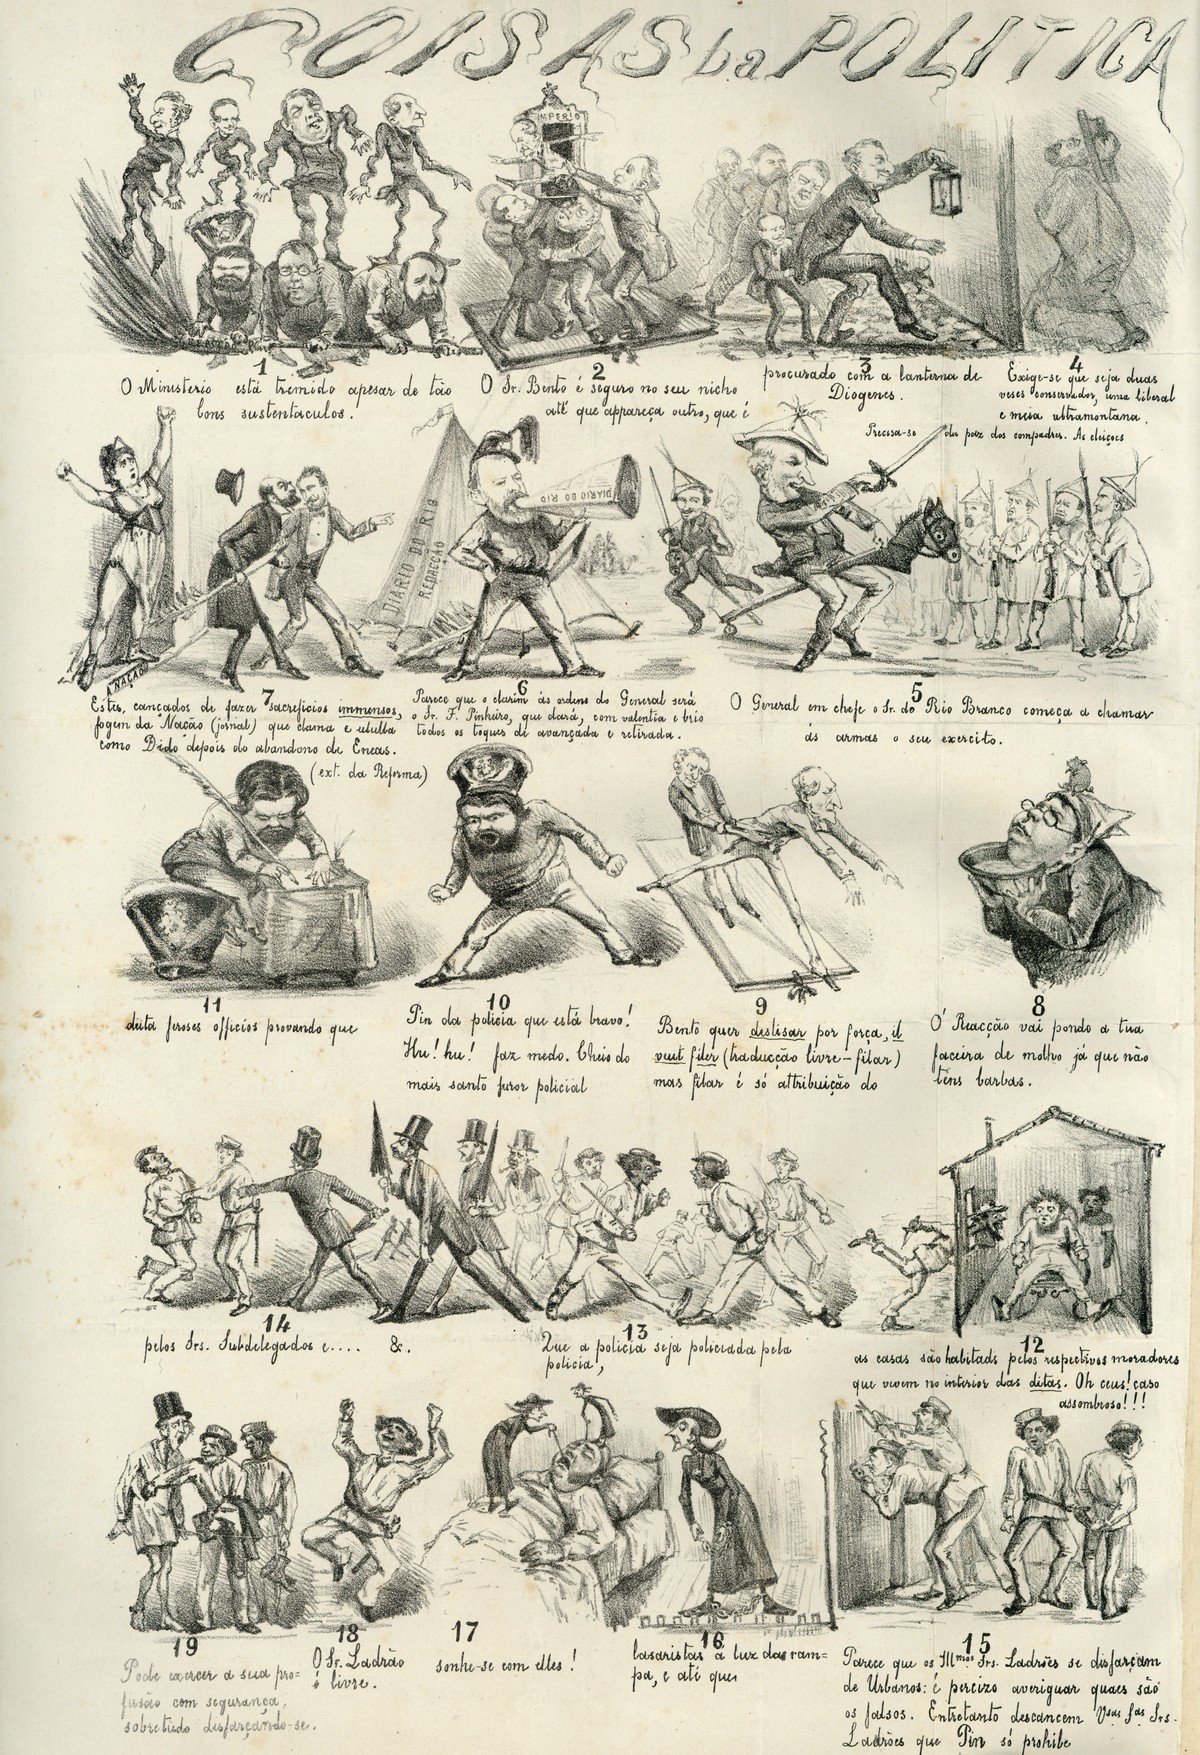 COISAS da POLITICA
IMPERIO
1
O Ministerio está tremido apesar de tão
bons sustentaculos.
2
O Sr. Bento é seguro no seu nicho
até que appareça outro, que é
3
procurado com a lanterna de
Diogenes.
4
Exige-se que seja duas
veses conservador, uma liberal
e meia ultramontana.
Precisa-se da paz dos compadres. As eleições
5
O General em chefe o Sr. do Rio Branco começa a chamar
ás armas o seu exercito.
DIARIO DO RIO
REDACÇÃO
DIARIO DO RIO
6
Parece que o clarim ás ordens do General será
o Sr. F. Pinheiro, que dará, com valentia e brio
todos os toques de avançada e retirada.
A NAÇÃO
7
Estes, cançados de fazer sacreficios immensos,
fogem da Nação (jornal) que clama e ululla
como Dido depois do abandono de Eneas.
(ext. da Reforma)
8
Ó Reacção vai pondo a tua
faceira de molho já que não
tens barbas.
9
Bento quer deslisar por força, il
veut filer (traducção livre - filar)
mas filar é só attribuição do
10
Pin da policia que está bravo!
Hu! hu! faz medo. Cheio do
mais santo furor policial
11
deita feroses officios provando que
12
as casas são habitads pelos respectivos moradores
que vivem no interior das ditas. Oh ceus! caso
assombroso!!!
13
Que a policia seja policiada pela
policia,
14
pelos Srs. Subdelegados e.... &.
15
Parece que os Illmos Srs. Ladrões se disfarçam
de Urbanos: é percizo averiguar quaes são
os falsos. Entretanto descancem Vsas Sas Srs.
Ladrões que Pin só prohibe
16
lasaristas á luz das ram=
pa, e até que
17
sonhe-se com elles!
18
O Sr. Ladrão
é livre.
19
Pode exercer a sua pro=
fissão com segurança,
sobretudo disfarçando-se.